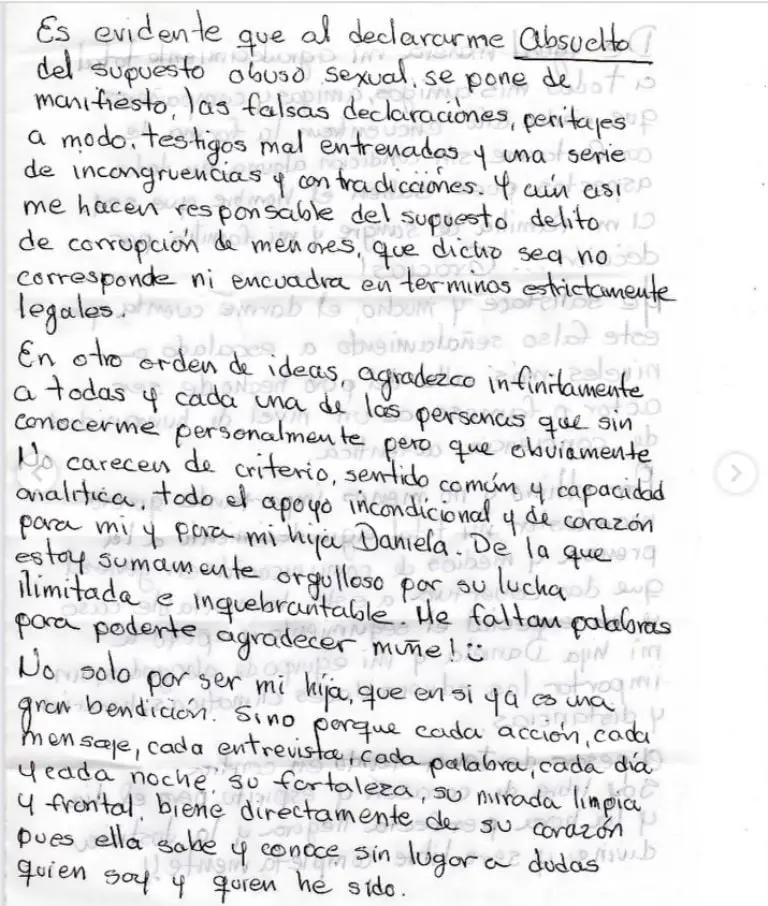 Es evidente que al declararme Absuelto
del supuesto abuso sexual, se pone de
manifiesto, las falsas declaraciones, peritajes
a modo, testigos mal entrenados y una serie
de incongruencias y contradicciones. Y aún así
me hacen responsable del supuesto delito
de corrupción de menores, que dicho sea no
corresponde ni encuadra en terminos estrictamente
legales.
En otro orden de ideas, agradezco infinitamente
a todas y cada una de las personas que sin
conocerme personalmente pero que obviamente
No carecen de criterio, sentido común y capacidad
analítica, todo el apoyo incondicional y de corazón
para mi y para mi hija Daniela. De la que
estoy sumamente orgulloso por su lucha
ilimitada e inquebrantable. Me faltan palabras
para poderte agradecer muñe!
No solo por ser mi hija, que en si ya es una
gran bendición. Sino porque cada acción, cada
mensaje, cada entrevista, cada palabra, cada día
y cada noche, su fortaleza, su mirada limpia
y frontal, biene directamente de su corazón
pues ella sabe y conoce sin lugar a dudas
quien soy y quien he sido.